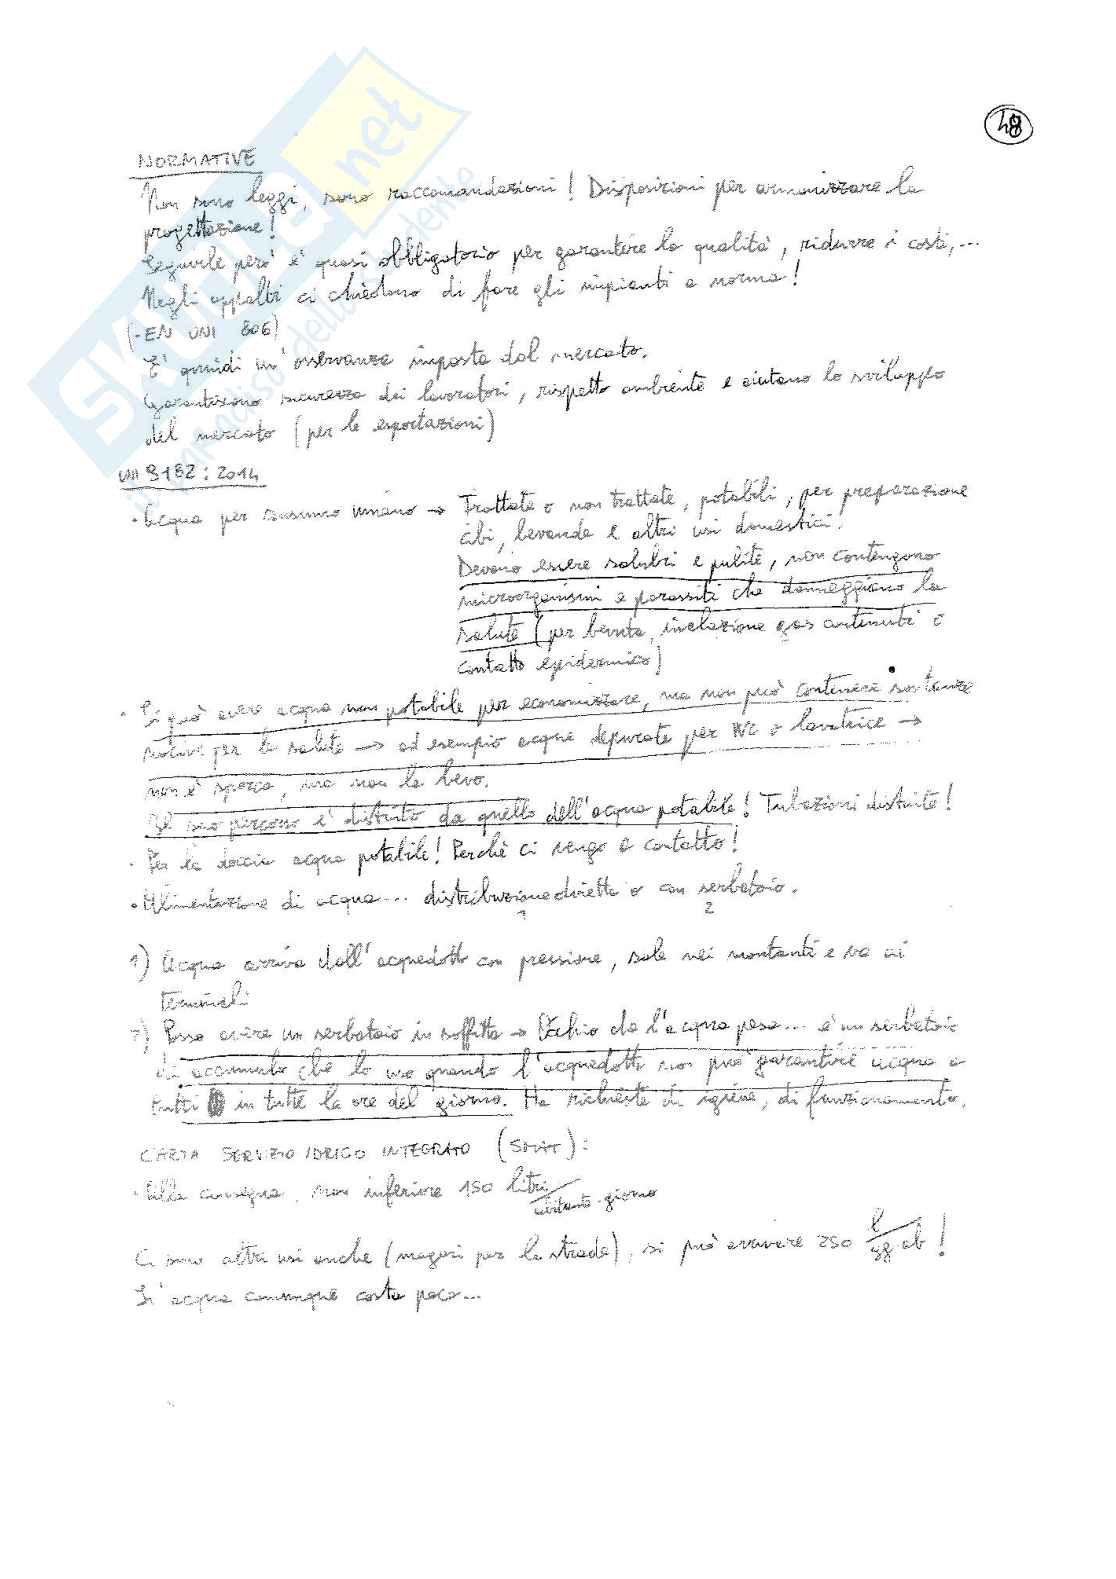 48
NORMATIVE
Non sono leggi, sono raccomandazioni! Disposizioni per armonizzare la
progettazione!
Seguirle però è quasi obbligatorio per garantire la qualità, ridurre i costi,...
Negli appalti ci chiedono di fare gli impianti a norma!
(-EN UNI 806)
E' quindi un'osservanza imposta dal mercato.
Garantiscono sicurezza dei lavoratori, rispetto ambiente e aiutano lo sviluppo
del mercato (per le esportazioni)
UNI 9182:2014
• Acqua per consumo umano → Trattate o non trattate, potabili, per preparazione
cibi, bevande e altri usi domestici.
Devono essere salubri e pulite, non contengono
microorganismi e parassiti che danneggiano la
salute (per bevuta, inalazione gas contenuti o
contatto epidermico)
• Si può avere acqua non potabile per economizzare, ma non può contenere sostanze
nocive per la salute → ad esempio acque depurate per WC o lavatrice →
non è sporca, ma non la bevo.
Il suo percorso è distinto da quello dell'acqua potabile! Tubazioni distinte!
• Per la doccia acqua potabile! Perché ci vengo a contatto!
• Alimentazione di acqua... distribuzione diretta o con serbatoio.
1 2
1) Acqua arriva dall'acquedotto con pressione, sale nei montanti e va ai
terminali
2) Posso avere un serbatoio in soffitta → Occhio che l'acqua pesa... è un serbatoio
di accumulo che lo uso quando l'acquedotto non può garantire acqua a
tutti in tutte le ore del giorno. Ha richieste di igiene, di funzionamento.
CARTA SERVIZIO IDRICO INTEGRATO (SMAT):
• Alla consegna, non inferiore 150 litri/abitante giorno
Ci sono altri usi anche (magari per la strada), si può arrivare 250 l/gg ab!
L'acqua comunque costa poco...